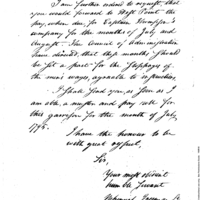 I am further ordered to request, that
you would forward to West Point the
pay, when due, for Captain Thompson's
company for the months of July and
August. The Council of Administration
have desired that six months should
be set a part for the stoppages of
the men's ways, agreeable to instruction.
I shall send you, as soon as I
am able, a muster and pay roll for
this garrison for the month of July,
1795.
I have the honour to be
with great respect,
Sir,
Your most obedient
humble Servant